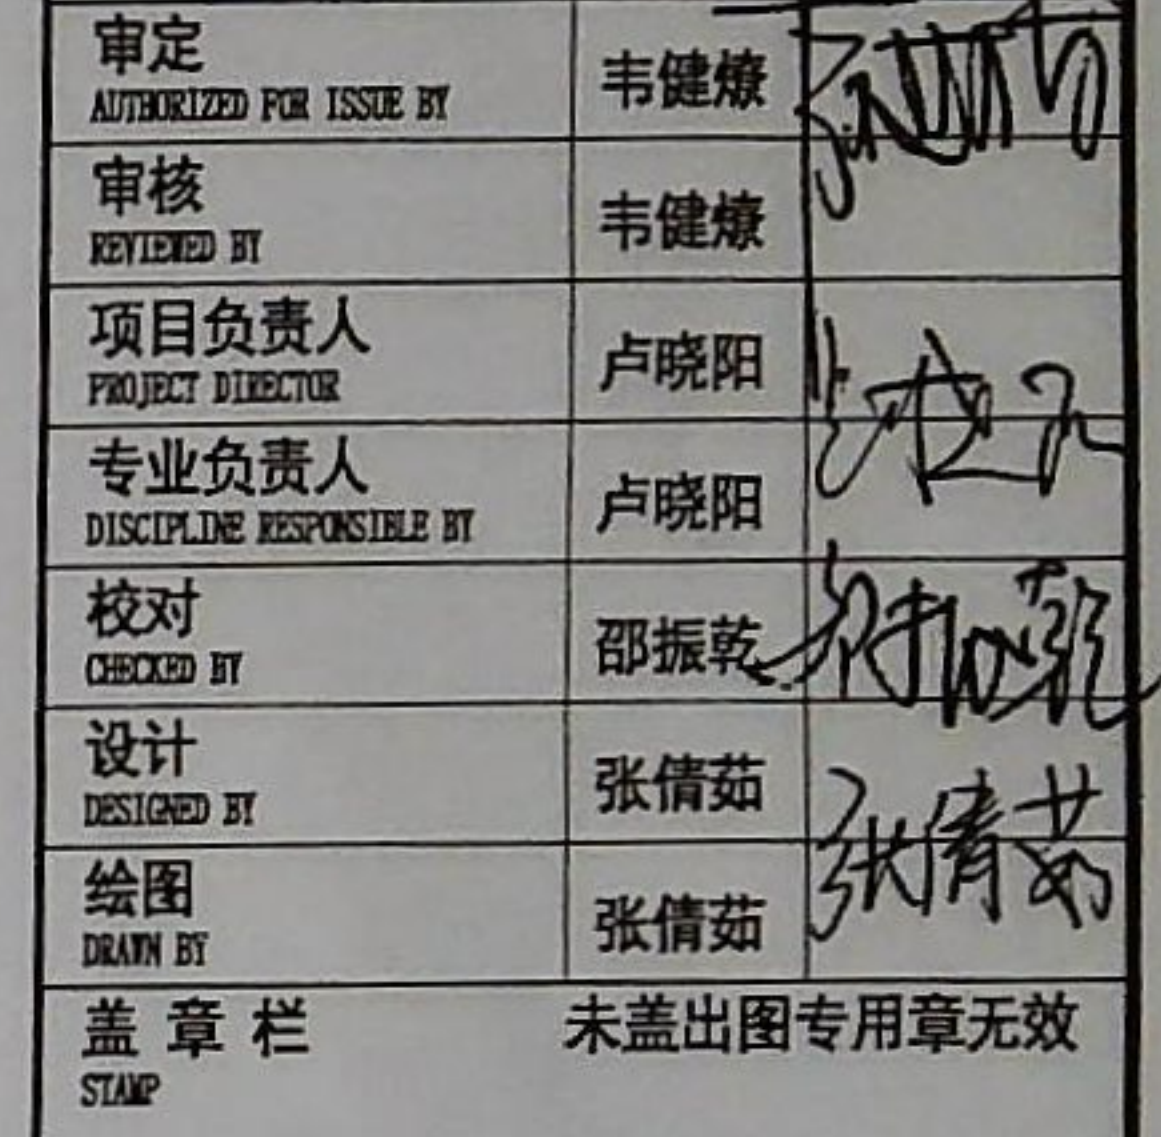 审定
AUTHORIZED FOR ISSUE BY
韦健燎
审核
REVIEWED BY
韦健燎
项目负责人
PROJECT DIRECTOR
卢晓阳
专业负责人
DISCIPLINE RESPONSIBLE BY
卢晓阳
校对
CHECKED BY
邵振乾
设计
DESIGNED BY
张倩茹
张倩茹
绘图
DRAWN BY
张倩茹
盖章栏 未盖出图专用章无效
STAMP